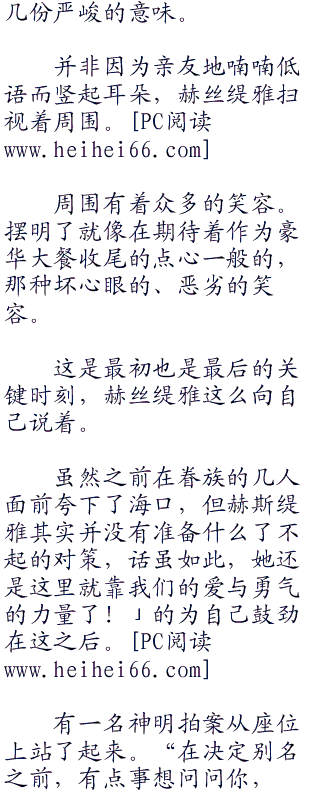 几份严峻的意味。
并非因为亲友地喃喃低
语而竖起耳朵，赫丝缇雅扫
视着周围。[PC阅读
www.heihei66.com]
周围有着众多的笑容。
摆明了就像在期待着作为豪
华大餐收尾的点心一般的，
那种坏心眼的、恶劣的笑
容。
这是最初也是最后的关
键时刻，赫丝缇雅这么向自
己说着。
虽然之前在眷族的几人
面前夸下了海口，但赫斯缇
雅其实并没有准备什么了不
起的对策，话虽如此，她还
是这里就靠我们的爱与勇气
的力量了！」的为自己鼓劲
在这之后。[PC阅读
www.heihei66.com]
有一名神明拍案从座位
上站了起来。“在决定别名
之前，有点事想问问你，